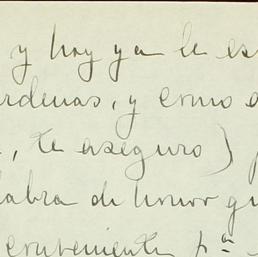 y hoy ya le es
rdenas, y como
, te aseguro)
labra de honor qu
conveniente pª